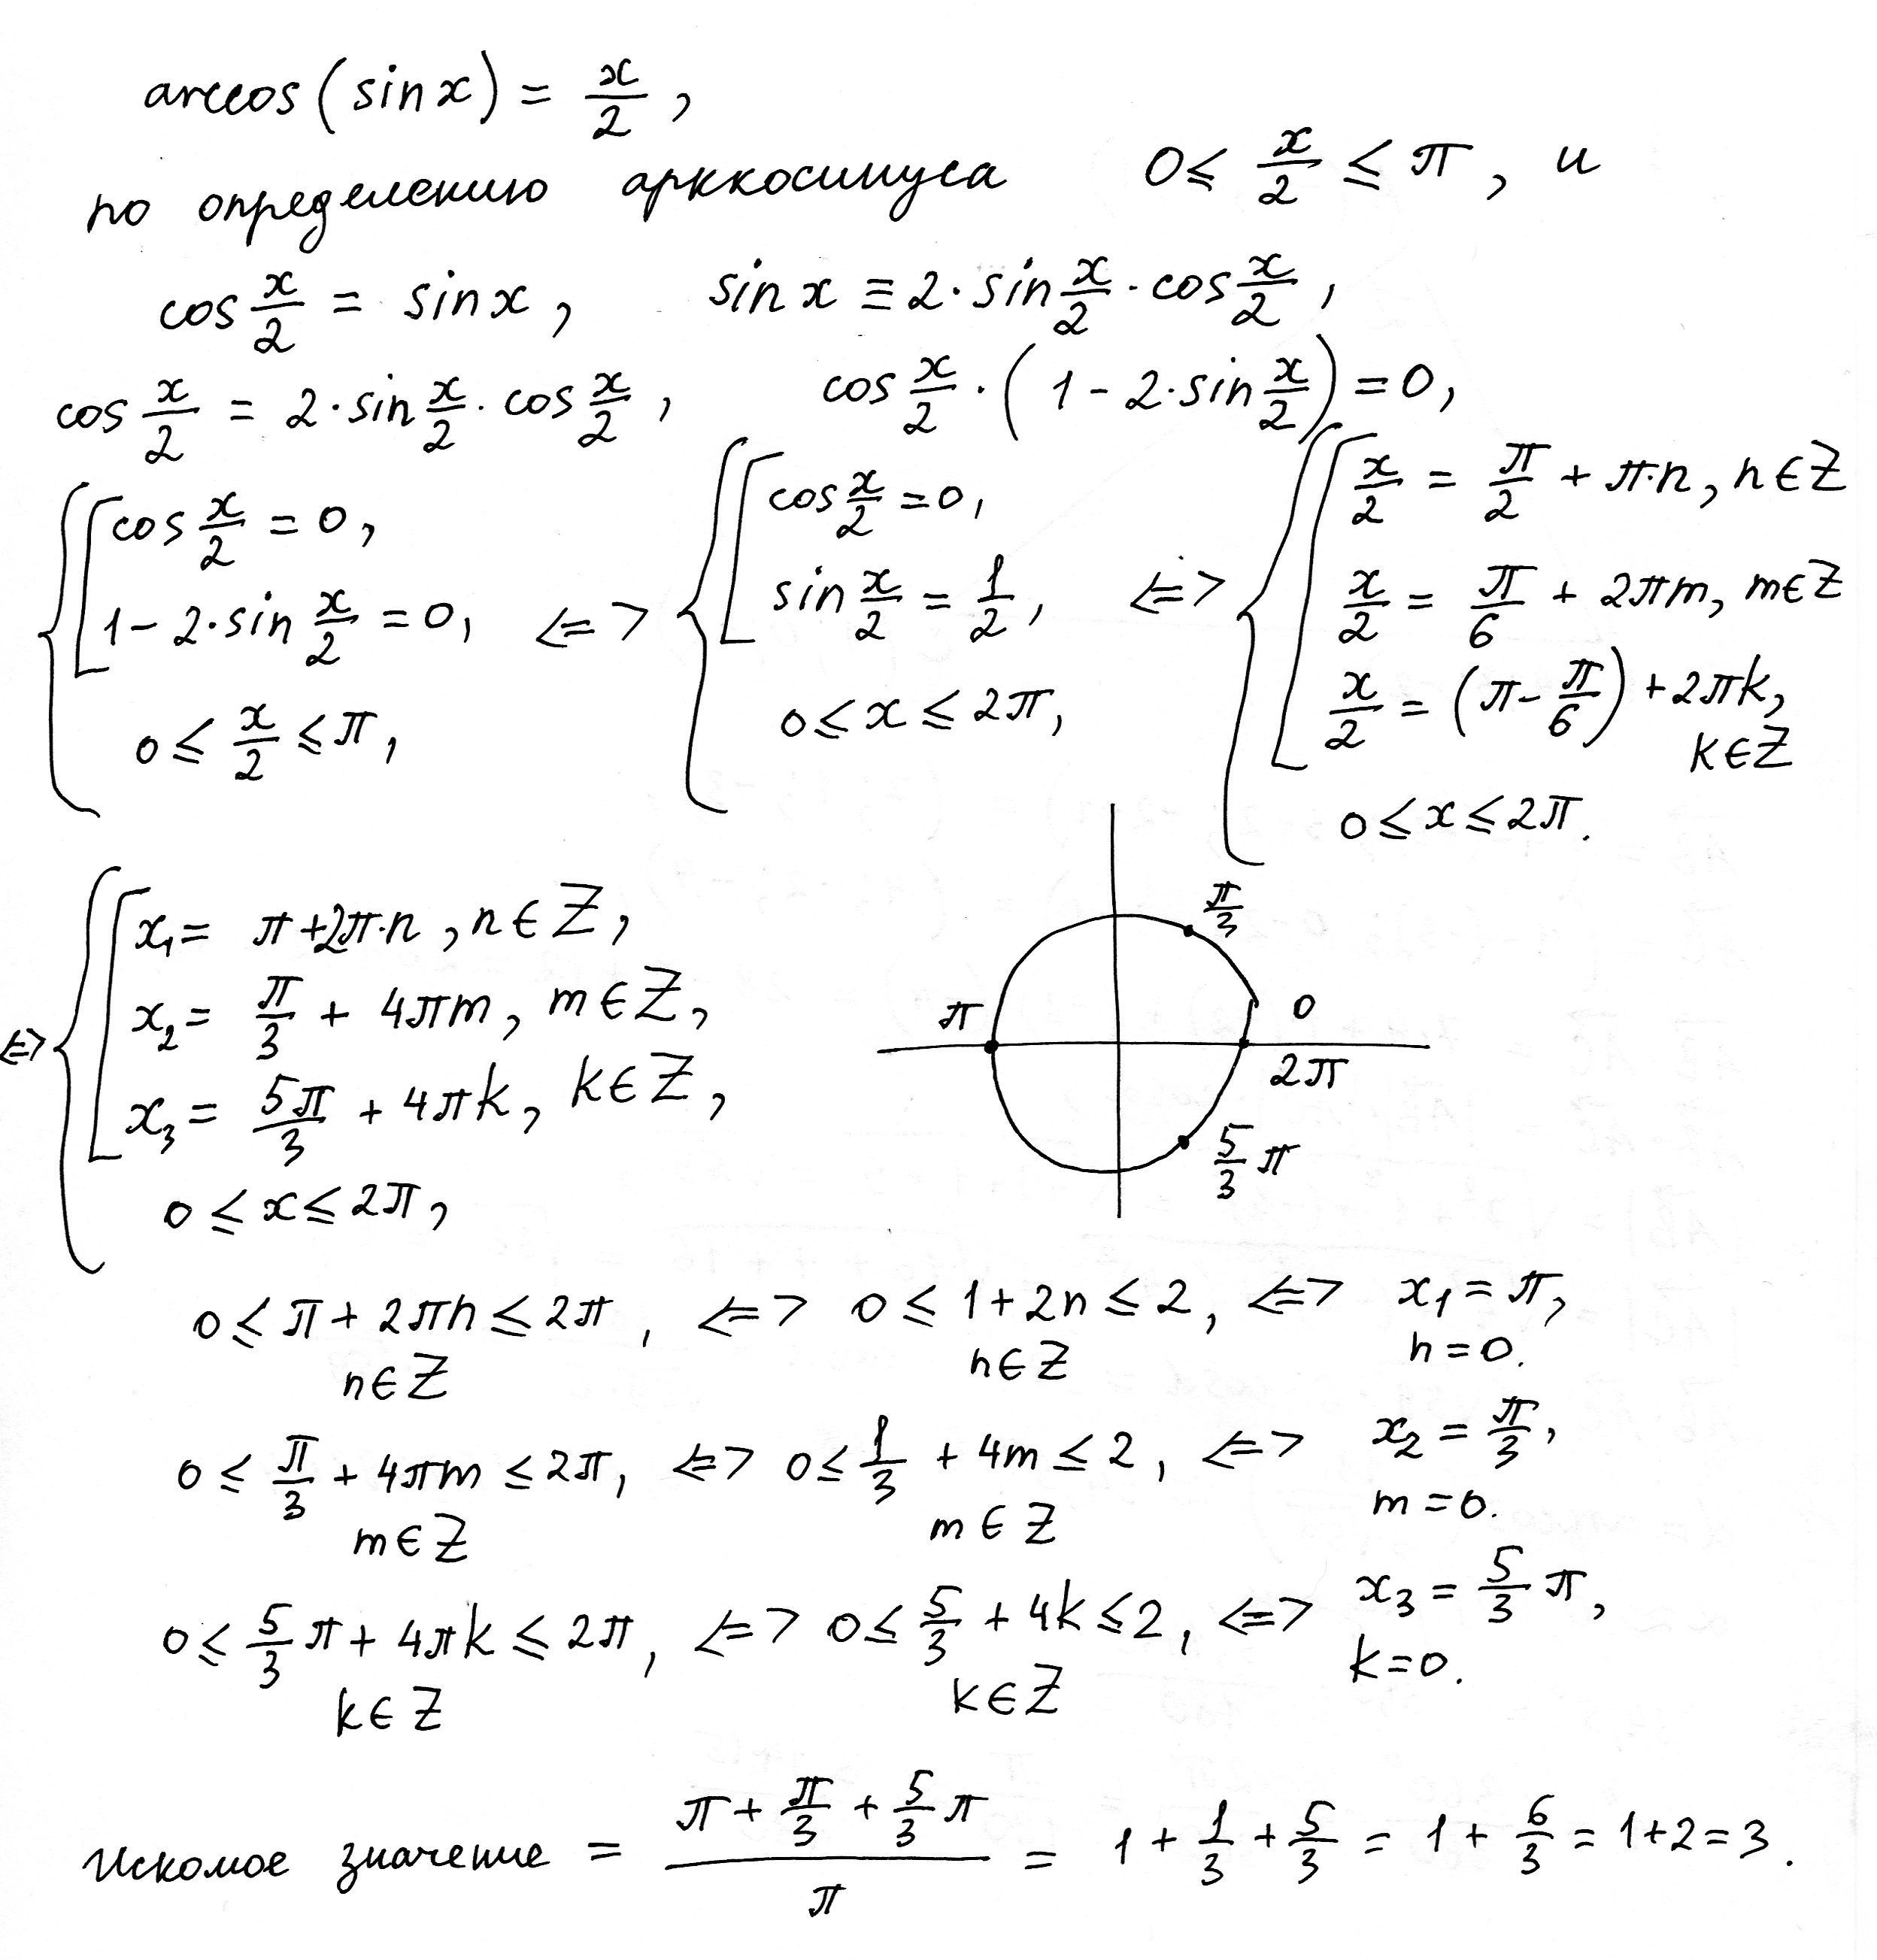 arccos(sin x) = x/2 ,
по определению арккосинуса 0 ≤ x/2 ≤ π , и
cos x/2 = sin x , sin x ≡ 2·sin x/2 · cos x/2 ,
cos x/2 = 2·sin x/2 · cos x/2 , cos x/2 · (1 - 2·sin x/2) = 0,
{ [ cos x/2 = 0,
1 - 2·sin x/2 = 0,
0 ≤ x/2 ≤ π,
<=> { [ cos x/2 = 0,
sin x/2 = 1/2 ,
0 ≤ x ≤ 2π,
<=> { [ x/2 = π/2 + π·n, n ∈ Z
x/2 = π/6 + 2πm, m ∈ Z
x/2 = (π - π/6) + 2πk,
k ∈ Z
0 ≤ x ≤ 2π.
<=> { [ x₁ = π + 2π·n , n ∈ Z,
x₂ = π/3 + 4πm, m ∈ Z,
x₃ = 5π/3 + 4πk, k ∈ Z,
0 ≤ x ≤ 2π,
π/3
π
0
2π
5/3 π
0 ≤ π + 2πn ≤ 2π , <=> 0 ≤ 1 + 2n ≤ 2, <=> x₁ = π,
n ∈ Z n ∈ Z n = 0.
0 ≤ π/3 + 4πm ≤ 2π, <=> 0 ≤ 1/3 + 4m ≤ 2 , <=> x₂ = π/3 ,
m ∈ Z m ∈ Z m = 0.
0 ≤ 5/3 π + 4πk ≤ 2π, <=> 0 ≤ 5/3 + 4k ≤ 2 , <=> x₃ = 5/3 π,
k ∈ Z k ∈ Z k = 0.
Искомое значение = (π + π/3 + 5/3 π)/π = 1 + 1/3 + 5/3 = 1 + 6/3 = 1 + 2 = 3 .